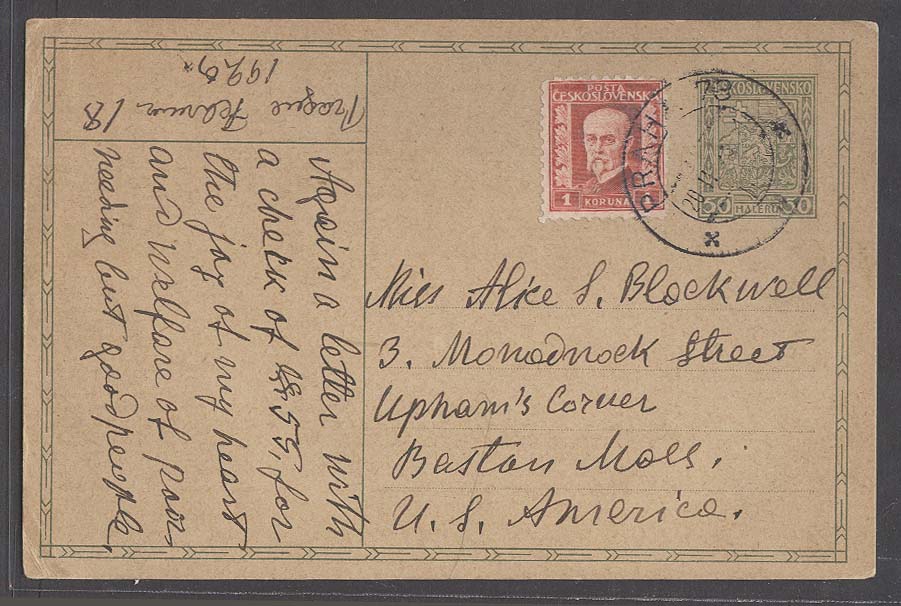 Prague
18
192
Again a letter with
a check of $ 55, for
the joy of my heart
and welfare of poor
needing but good people.
POSTA
ČESKOSLOVENSKO
1 KORUNA 1
ČESKOSLOVENSKO
50 HALÉŘŮ 50
PRAHA 78
Miss Alice S. Blackwell
3. Monadnock Street
Upham's Corner
Boston Mass.
U. S. America.